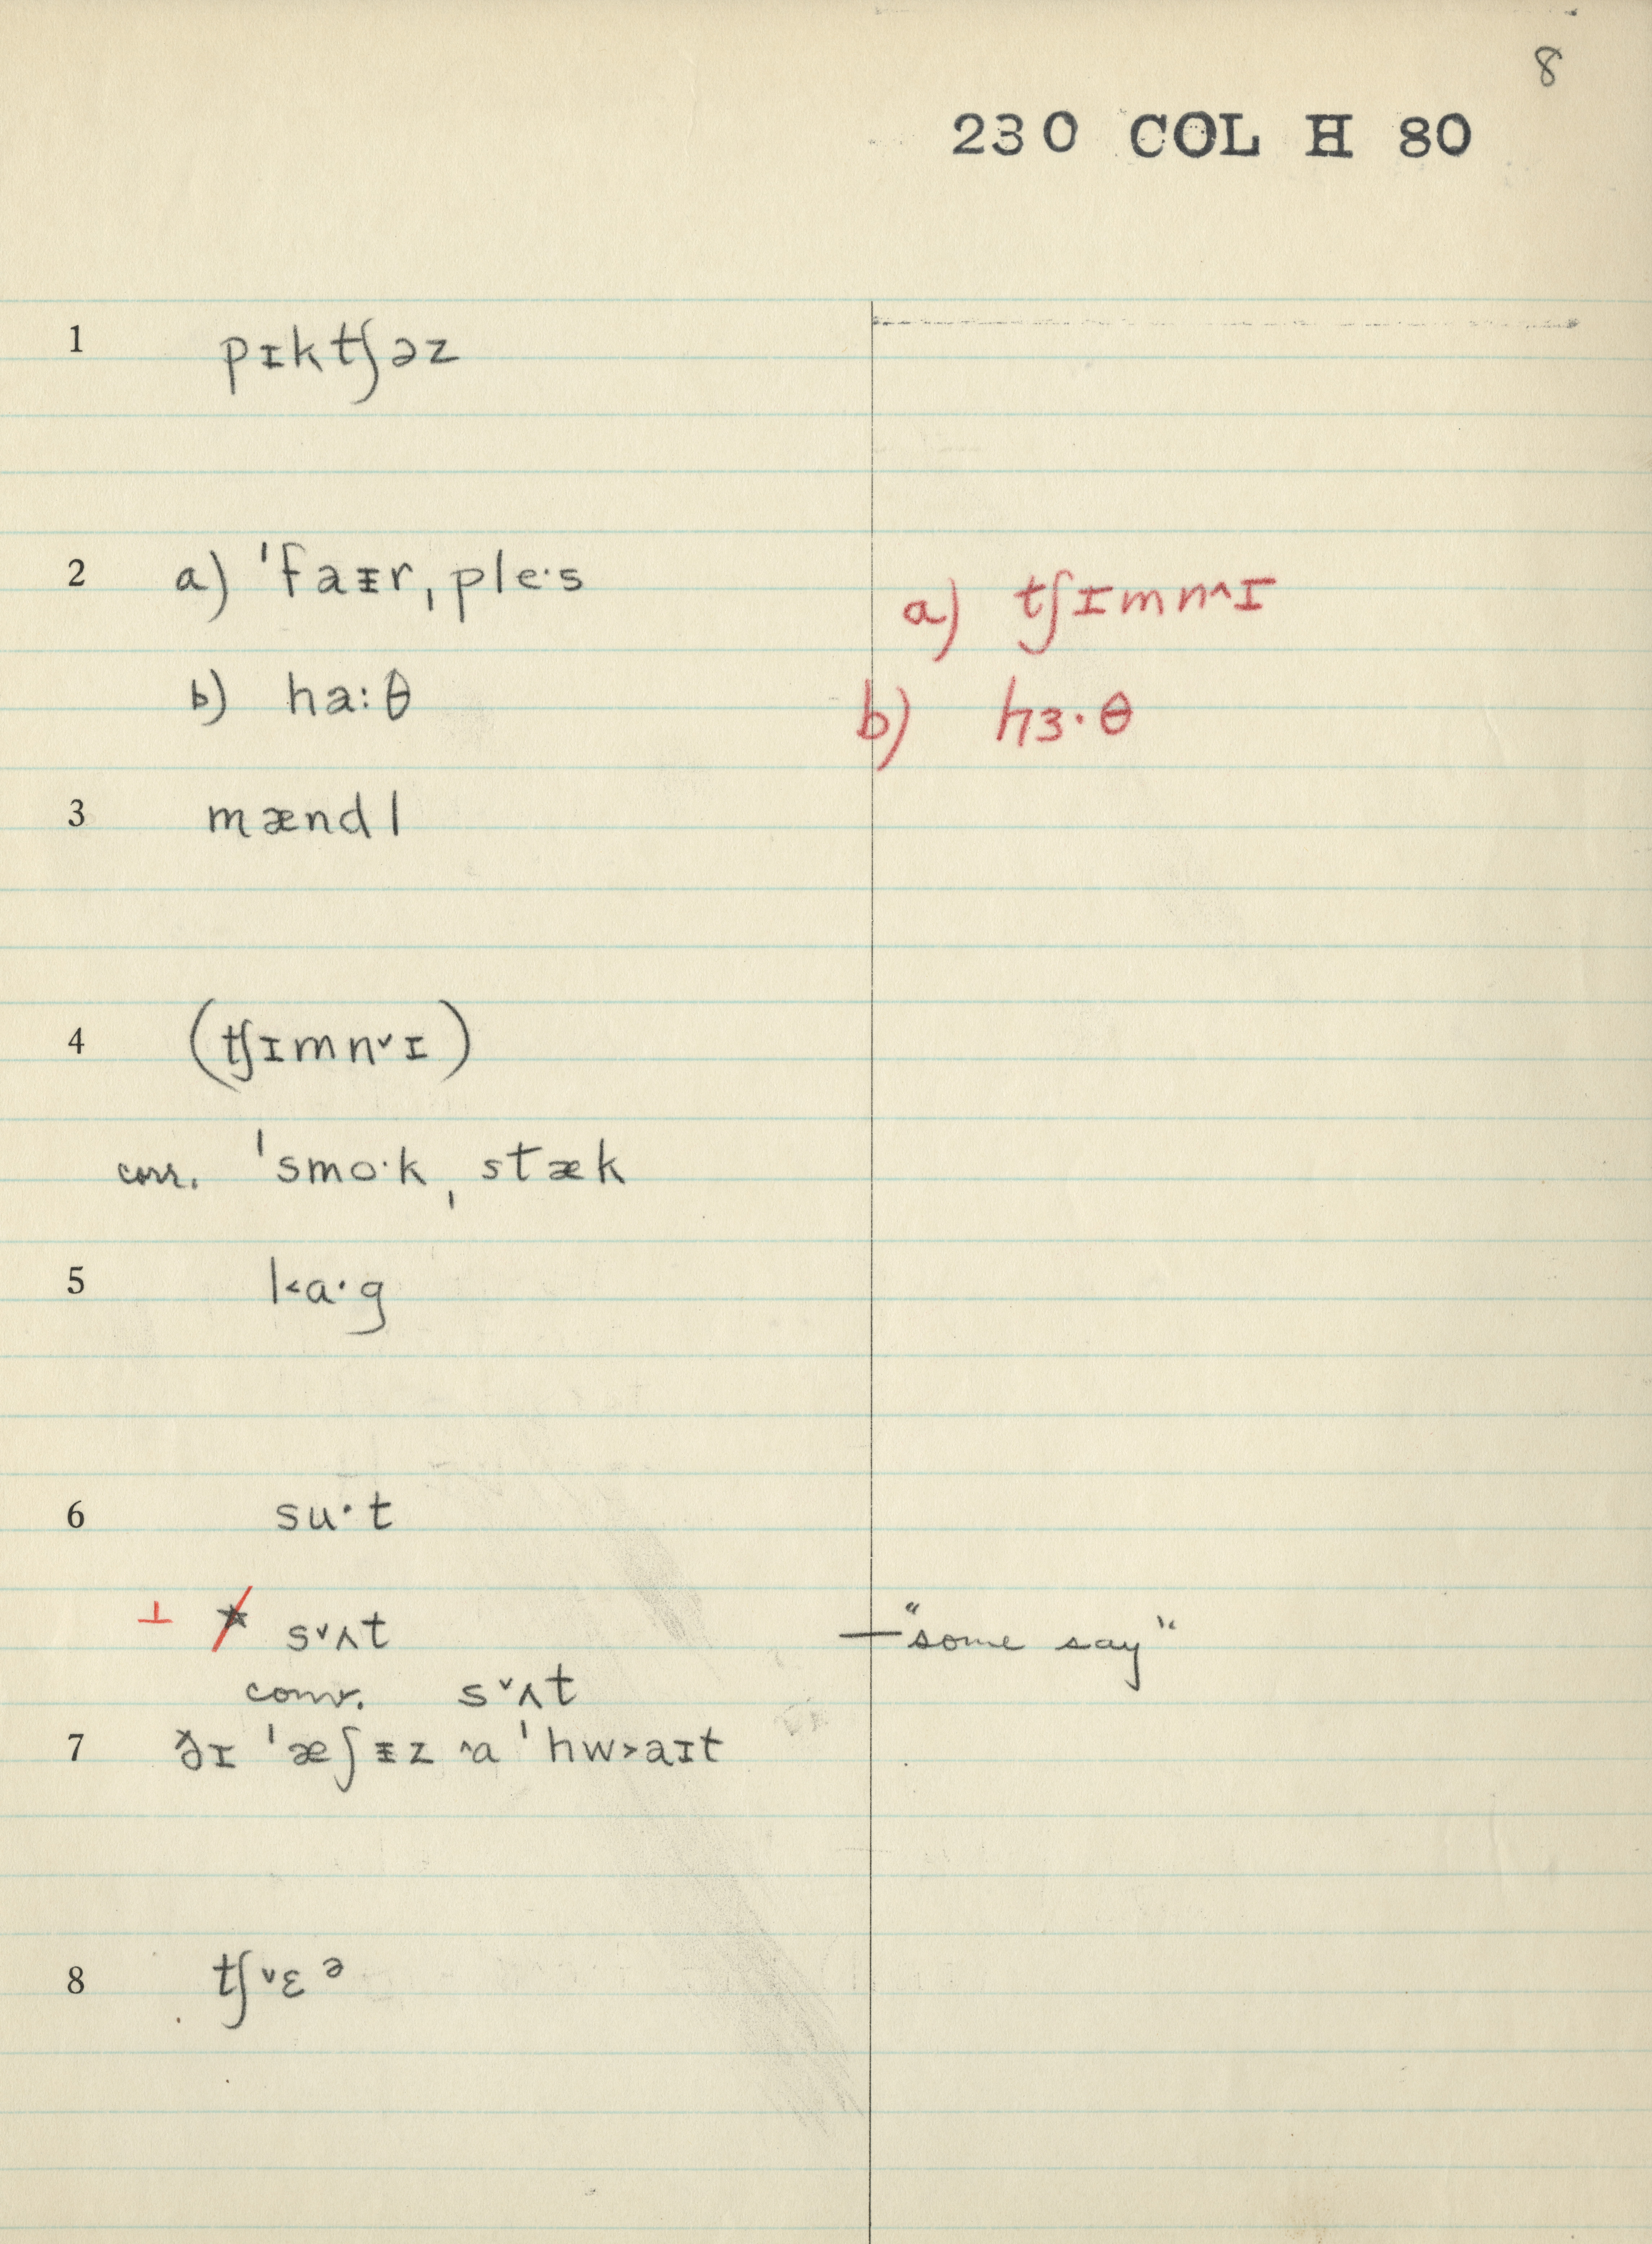 8
230 COL H 80
1 pɪktʃəz
2 a) ˈfaᵻr ˌple·s a) tʃɪmn^ɪ
b) ha:θ b) hɜ·θ
3 mændl
4 (tʃɪmnˇɪ)
corr. ˈsmo·k ˌstæk
5 l<a·g
6 su·t
⊥ * sˇʌt —"some say"
conv. sˇʌt
7 ðɪ ˈæʃᵻz ^a ˈhw>aɪt
8 tʃˇɛᵊ